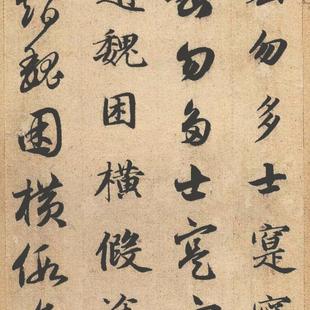 勿多士寔寧
勿多士寔
趙魏困橫假
趙魏困橫假